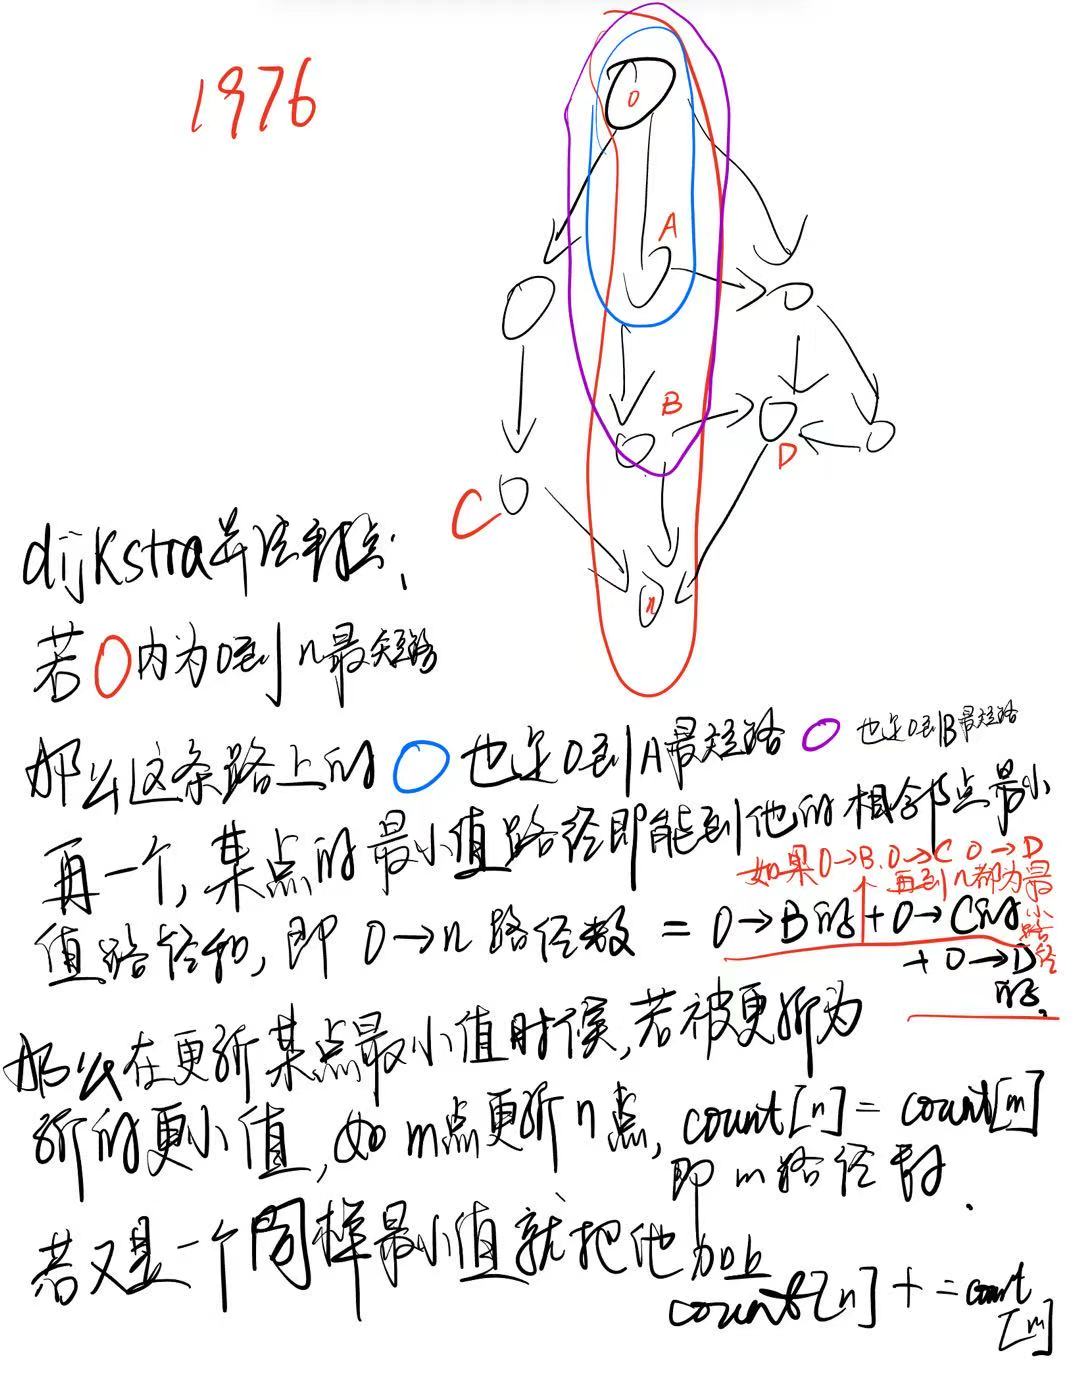 1976
0
A
B
D
C
n
dijkstra算法特点:
若 内为0到n最短路
那么这条路上的 也是0到A最短路 也是0到B最短路
再一个,某点的最小值路径即能到他的相邻点最小
如果0→B.0→C 0→D
再到n都为最小路径
值路径和,即 0→n 路径数 = 0→B的 + 0→C的
+ 0→D的
那么在更新某点最小值时候,若被更新为
新的更小值,如m点更新n点, count[n] = count[m]
即m路径数.
若又是一个同样最小值就把他加上
count[n] += count[m]